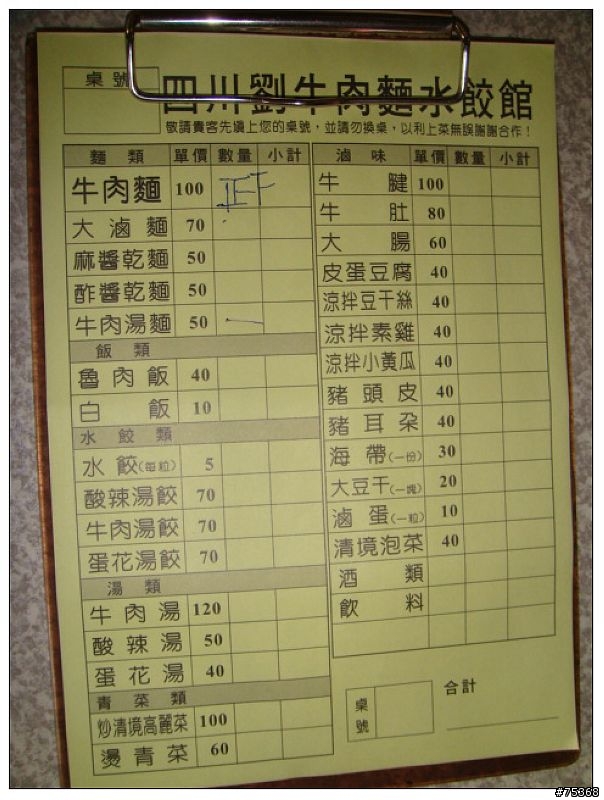 桌號
四川劉牛肉麵水餃館
敬請貴客先填上您的桌號，並請勿換桌，以利上菜無誤謝謝合作！
麵類 單價 數量 小計
牛肉麵 100 正下
大滷麵 70
麻醬乾麵 50
酢醬乾麵 50
牛肉湯麵 50 一
飯類
魯肉飯 40
白飯 10
水餃類
水餃(每粒) 5
酸辣湯餃 70
牛肉湯餃 70
蛋花湯餃 70
湯類
牛肉湯 120
酸辣湯 50
蛋花湯 40
青菜類
炒清境高麗菜 100
燙青菜 60
滷味 單價 數量 小計
牛腱 100
牛肚 80
大腸 60
皮蛋豆腐 40
涼拌豆干絲 40
涼拌素雞 40
涼拌小黃瓜 40
豬頭皮 40
豬耳朵 40
海帶(一份) 30
大豆干(一塊) 20
滷蛋(一粒) 10
清境泡菜 40
酒類
飲料
桌號
合計
#75368